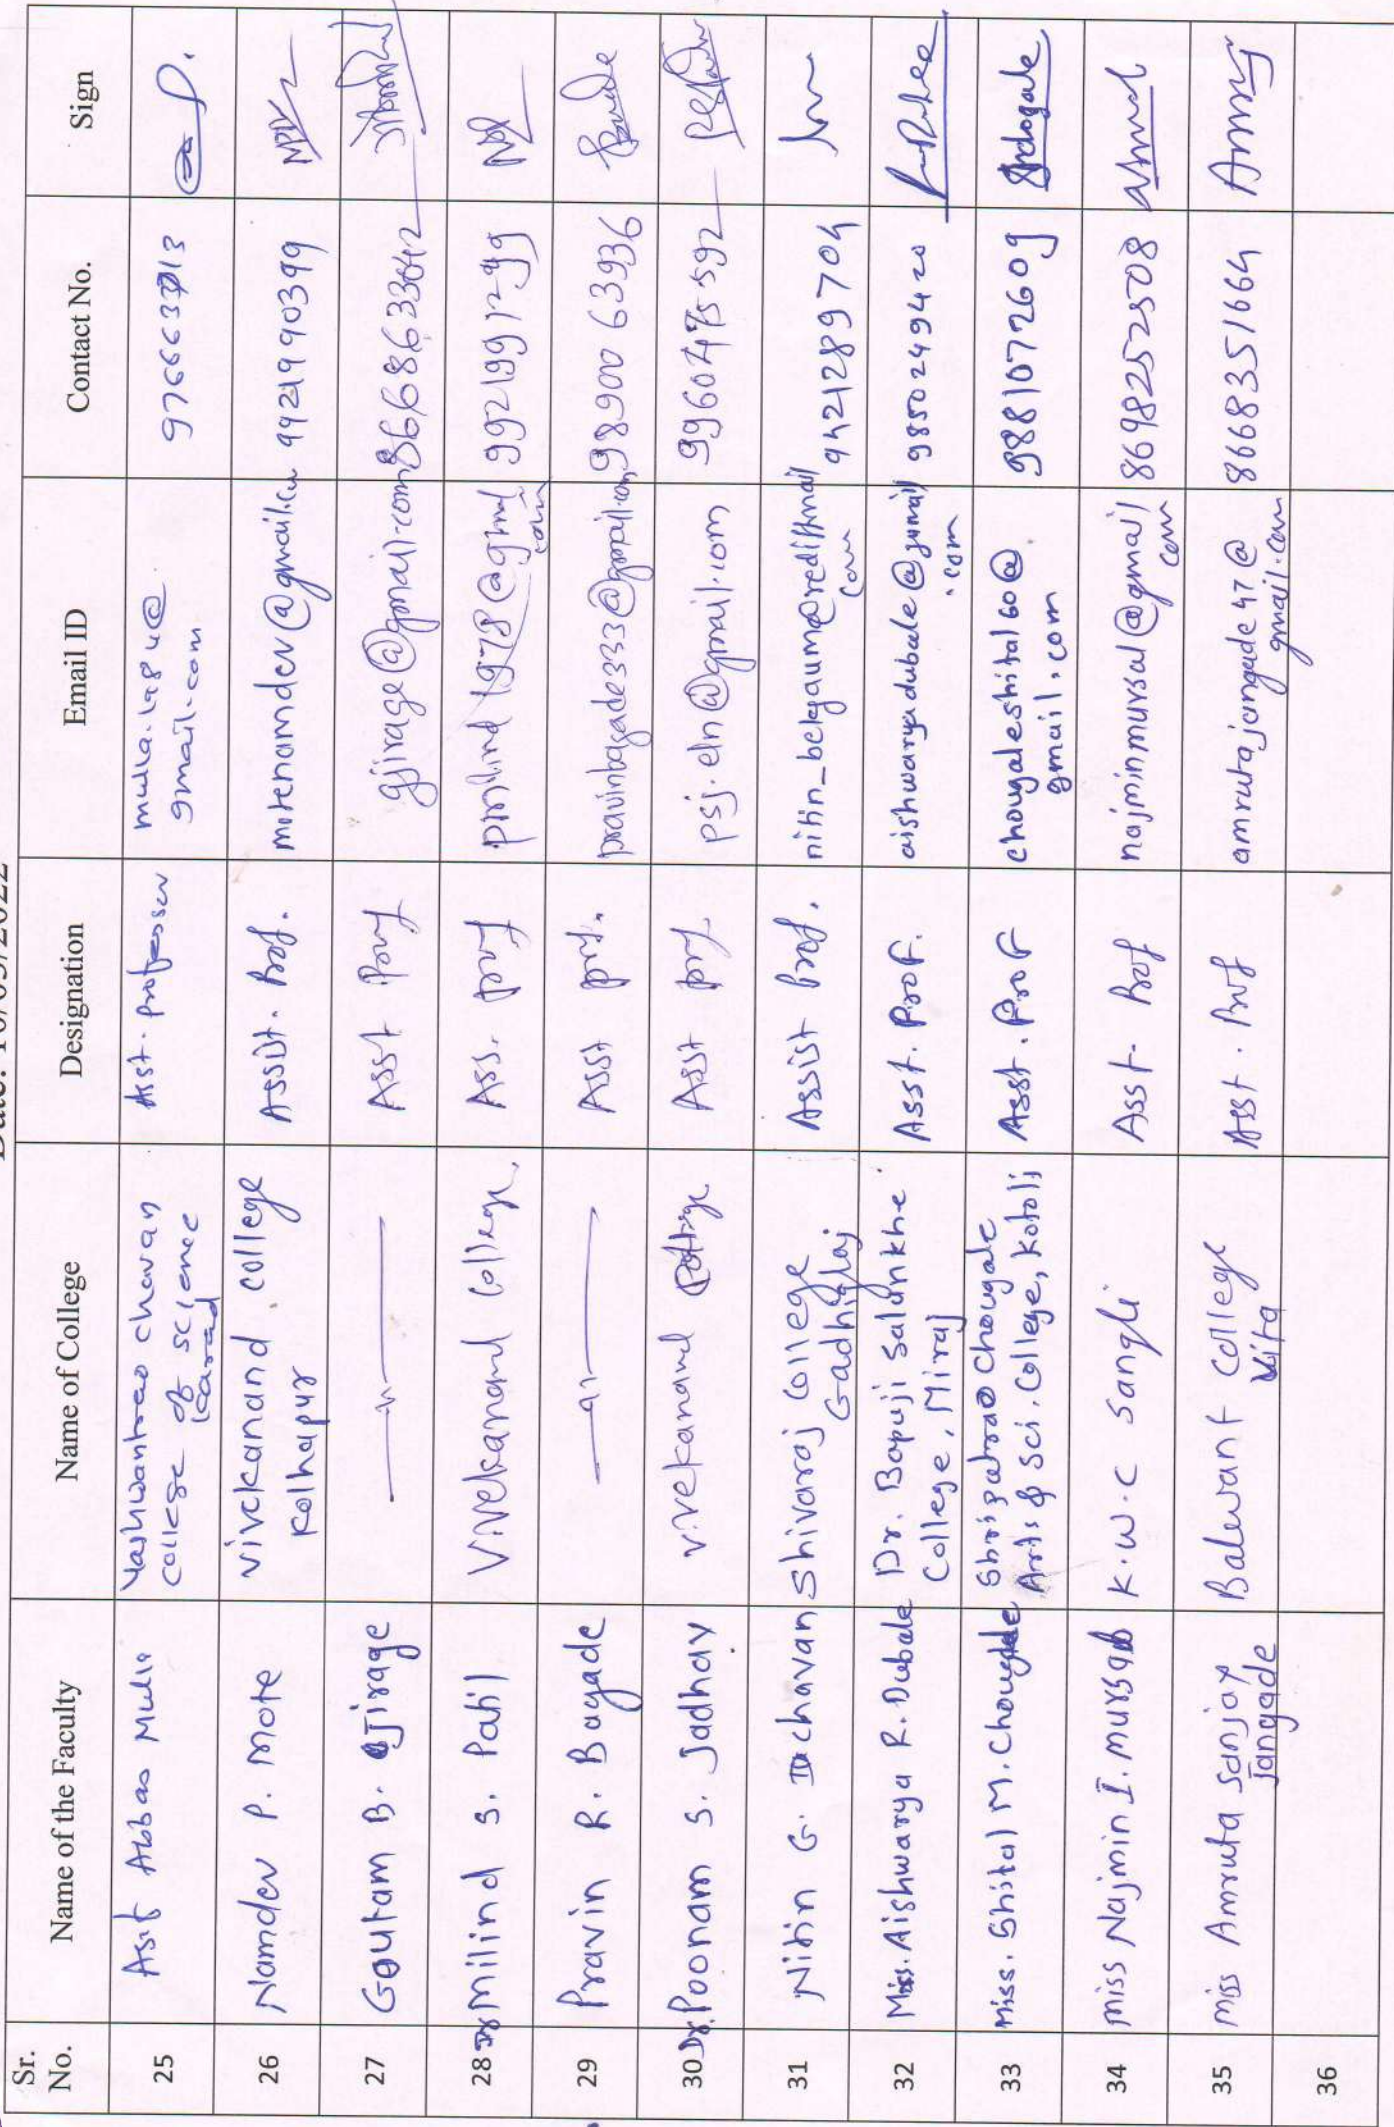 Sr. No. Name of the Faculty Name of College Designation Email ID Contact No. Sign
25 Asif Abbas Mulla Yashwantrao chavan college of science karad Asst. professor mulla.1984@gmail.com
26 Namdev P. Mote Vivekanand college Kolhapur Assist. Prof. motenamdev@gmail.com
27 Goutam B. Jirage —〃— Asst Prof gjirage@gmail.com 8668633042
28 Dr Milind S. Patil Vivekanand College. Ass. prof pmilind1978@gmail.com
29 Pravin R. Bagade —〃— Asst prf. pravinbagade333@gmail.com 9890063936
30 Dr. Poonam S. Jadhav Vivekanand College Asst prf. psj.eln@gmail.com 9960475592
31 Nitin G. chavan Shivaraj College Gadhinglaj Assist Prof. nitin_belgaum@rediffmail.com 9421289704
32 Miss. Aishwarya R. Dubale Dr. Bapuji Salunkhe College, Miraj Asst. Prof. aishwaryadubale@gmail.com 9850249420
33 Miss. Shital M. Chougale Shripatrao Chougale Arts & Sci. College, Kotoli Asst. Prof chougaleshital60@gmail.com 9881072609
34 Miss Najmin I. mursal K.W.C Sangli Asst. Prof najminmursal@gmail.com 8698252508
35 Miss Amruta Sanjay Jangade Balwant College Vita Asst. Prof amrutajangade47@gmail.com 8668351664
36